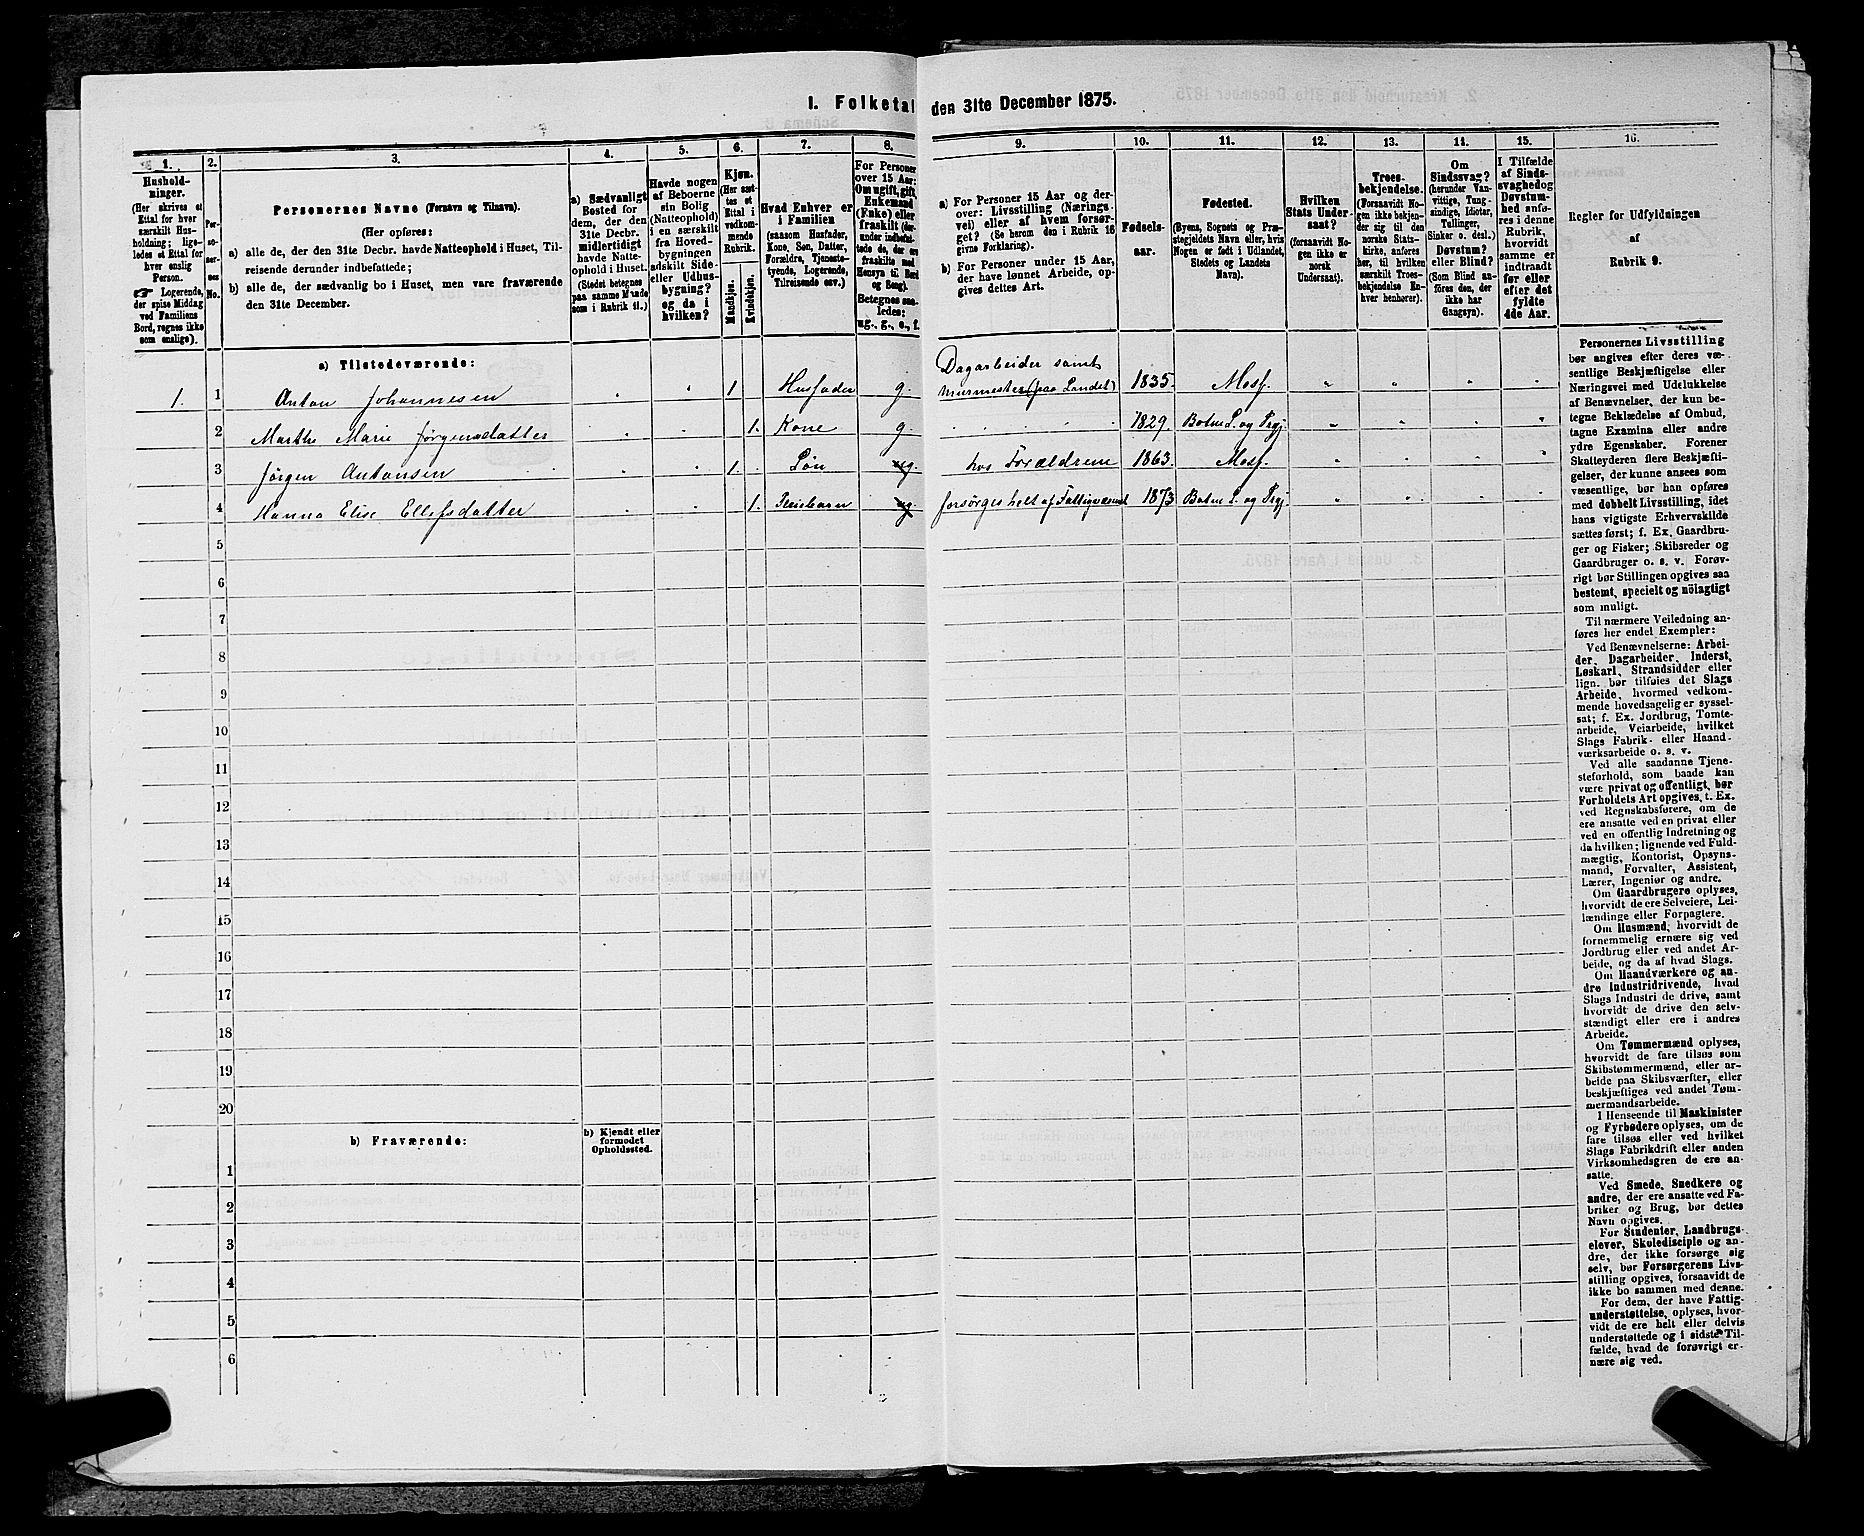 I. Folketal den 31te December 1875.
1. 2. 3. 4. 5. 6. 7. 8. 9. 10. 11. 12. 13. 14. 15. 16.
Hushold-
ninger.
(Her skrives et
Ettal for hver
særskilt Hus-
holdning; lige-
ledes et Ettal for
hver enslig
Person.
☞ Logerende,
der spise Middag
ved Familiens
Bord, regnes ikke
som enslige).
Per-
so-
ner-
nes
No.
Personernes Navne (Fornavn og Tilnavn).
(Her opføres:
a) alle de, der den 31te Decbr. havde Natteophold i Huset, Til-
reisende derunder indbefattede;
b) alle de, der sædvanlig bo i Huset, men vare fraværende
den 31te December.
a) Sædvanligt
Bosted for
dem, der den
31te Decbr.
midlertidigt
havde Natte-
ophold i Huset.
(Stedet betegnes
paa samme Maade
som i Rubrik 11.)
Havde nogen
af Beboerne
sin Bolig
(Natteophold)
i en særskilt
fra Hoved-
bygningen
adskilt Side-
eller Udhus-
bygning?
og da i
hvilken?
Kjøn.
(Her sæt-
tes et
Ettal i
vedkom-
mende
Rubrik.
Mandkjøn.
Kvindekjøn.
Hvad Enhver er
i Familien
(saasom Husfader,
Kone, Søn, Datter,
Forældre, Tjeneste-
tyende, Logerende,
Tilreisende osv.)
For Personer
over 15 Aar:
Om ugift, gift,
Enkemand
(Enke) eller
fraskilt (der-
under indbefat-
tede de, der ere
fraskilte med
Hensyn til Bord
og Seng).
Betegnes saa-
ledes:
ug., g., e., f.
a) For Personer 15 Aar og der-
over: Livsstilling (Nærings-
vei) eller af hvem forsør-
get? (Se herom den i Rubrik 16
givne Forklaring).
b) For Personer under 15 Aar,
der have lønnet Arbeide, op-
gives dettes Art.
Fødsels-
aar.
Fødested.
(Byens, Sognets og Præ-
stegjeldets Navn eller, hvis
Nogen er født i Udlandet,
Stedets og Landets
Navn).
Hvilken
Stats Under-
saat?
(forsaavidt No-
gen ikke er
norsk
Undersaat).
Troes-
bekjendelse.
(Forsaavidt No-
gen ikke bekjen-
der sig til den
norske Stats-
kirke, anføres
her, til hvilken
særskilt Troes-
bekjendelse En-
hver henhører).
Om
Sindssvag?
(herunder Van-
vittige, Tung-
sindige, Idioter,
Tullinger,
Sinker o. desl.)
Døvstum?
eller Blind?
(Som Blind an-
føres den, der
ikke har
Gangsyn).
I Tilfælde
af Sinds-
svaghed og
Døvstum-
hed anfø-
res i denne
Rubrik,
hvorvidt
samme er
indtraadt
før eller
efter det
fyldte
4de Aar.
Regler for Udfyldningen
af
Rubrik 9.
a) Tilstedeværende:
Dagarbeider samt
1. 1 Anton Johannesen " " 1 Husfader g. Murmester (paa Landet) 1835. Mosf. " " " "
2 Marthe Marie Jørgensdatter " " 1. Kone g. " " " " 1829 Botne S. og Prgj. " " " "
3 Jørgen Antonsen " " 1. Søn ug. hos Forældrene 1863. Mosf. " " " "
4 Hanna Elise Ellefsdatter " " 1. Pleiebarn ug. forsørges helt af Fattigvæsenet 1873 Botne S. og Prgj. " " "
5
6
7
8
9
10
11
12
13
14
15
16
17
18
19
20
b) Fraværende:
b) Kjendt eller
formodet
Opholdssted.
1
2
3
4
5
6
Personernes Livsstilling
bør angives efter deres væ-
sentlige Beskjæftigelse eller
Næringsvei med Udelukkelse
af Benævnelser, der kun be-
tegne Beklædelse af Ombud,
tagne Examina eller andre
ydre Egenskaber. Forener
Skatteyderen flere Beskjæfti-
gelser, der kunne ansees som
væsentlige, bør han opføres
med dobbelt Livsstilling, idet
hans vigtigste Erhvervskilde
sættes først; f. Ex. Gaardbru-
ger og Fisker; Skibsreder og
Gaardbruger o. s. v. Forøv-
rigt bør Stillingen opgives saa
bestemt, specielt og nöiagtigt
som muligt.
Til nærmere Veiledning an-
føres her endel Exempler:
Ved Benævnelserne: Arbei-
der, Dagarbeider, Inderst,
Løskarl, Strandsidder eller
lign. bør tilføies det Slags
Arbeide, hvormed vedkom-
mende hovedsagelig er syssel-
sat; f. Ex. Jordbrug, Tomte-
arbeide, Veiarbeide, hvilket
Slags Fabrik- eller Haand-
værksarbeide o. s. v.
Ved alle saadanne Tjene-
steforhold, som baade kan
være privat og offentligt, bør
Forholdets Art opgives, t. Ex.
ved Regnskabsførere, om de
ere ansatte ved en privat eller
ved en offentlig Indretning og
da hvilken; lignende ved Fuld-
mægtig, Kontorist, Opsyns-
mand, Forvalter, Assistent,
Lærer, Ingeniør og andre.
Om Gaardbrugere oplyses,
hvorvidt de ere Selveiere, Lei-
lændinge eller Forpagtere.
Om Husmænd, hvorvidt de
fornemmelig ernære sig ved
Jordbrug eller ved andet Ar-
beide, og da af hvad Slags.
Om Haandværkere og an-
dre Industridrivende, hvad
Slags Industri de drive, samt
hvorvidt de drive den selv-
stændigt eller ere i andres
Arbeide.
Om Tømmermænd oplyses,
hvorvidt de fare tilsøs som
Skibstømmermænd, eller ar-
beide paa Skibsværfter, eller
beskjæftiges ved andet Tøm-
mermandsarbeide.
I Henseende til Maskinister
og Fyrbødere oplyses, om de
fare tilsøs eller ved hvilket
Slags Fabrikdrift eller anden
Virksomhedsgren de ere an-
satte.
Ved Smede, Snedkere og
andre, der ere ansatte ved Fa-
briker og Brug, bør dettes
Navn opgives.
For Studenter, Landbrugs-
elever, Skoledisciple og an-
dre, der ikke forsørge sig
selv, bør Forsørgerens Livs-
stilling opgives, forsaavidt de
ikke bo sammen med denne.
For dem, der have Fattig-
understøttelse, oplyses, hvor-
vidt de ere helt eller delvis
understøttede og i sidste Til-
fælde, hvad de forøvrigt er-
nære sig ved.